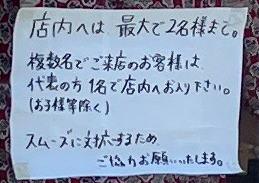 店内へは 最大で2名様まで。
複数名でご来店のお客様は
代表の方 1名で店内へお入り下さい。
(お子様等除く)
スムーズに対応するため
ご協力お願いいたします。